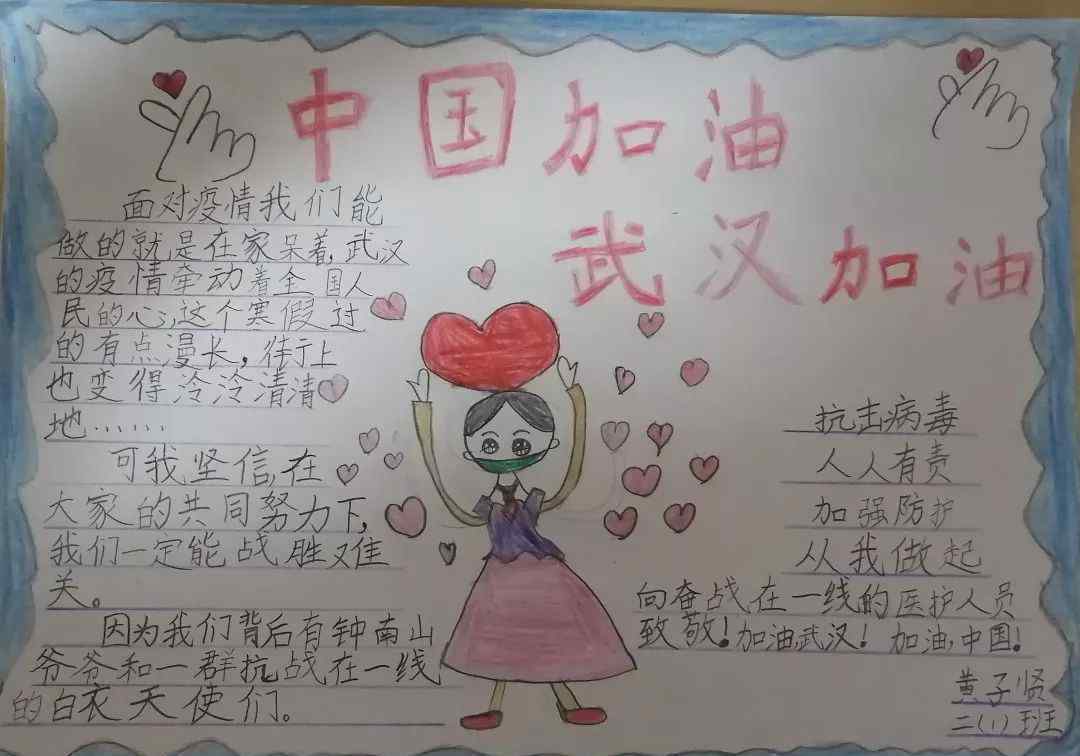 中国加油
武汉加油
面对疫情我们能
做的就是在家呆着,武汉
的疫情牵动着全国人
民的心,这个寒假过
的有点漫长,街上
也变得冷冷清清
地……
可我坚信,在
大家的共同努力下,
我们一定能战胜难
关。
因为我们背后有钟南山
爷爷和一群抗战在一线
的白衣天使们。
抗击病毒
人人有责
加强防护
从我做起
向奋战在一线的医护人员
致敬!加油,武汉!加油,中国!
黄子贤
二(1)班